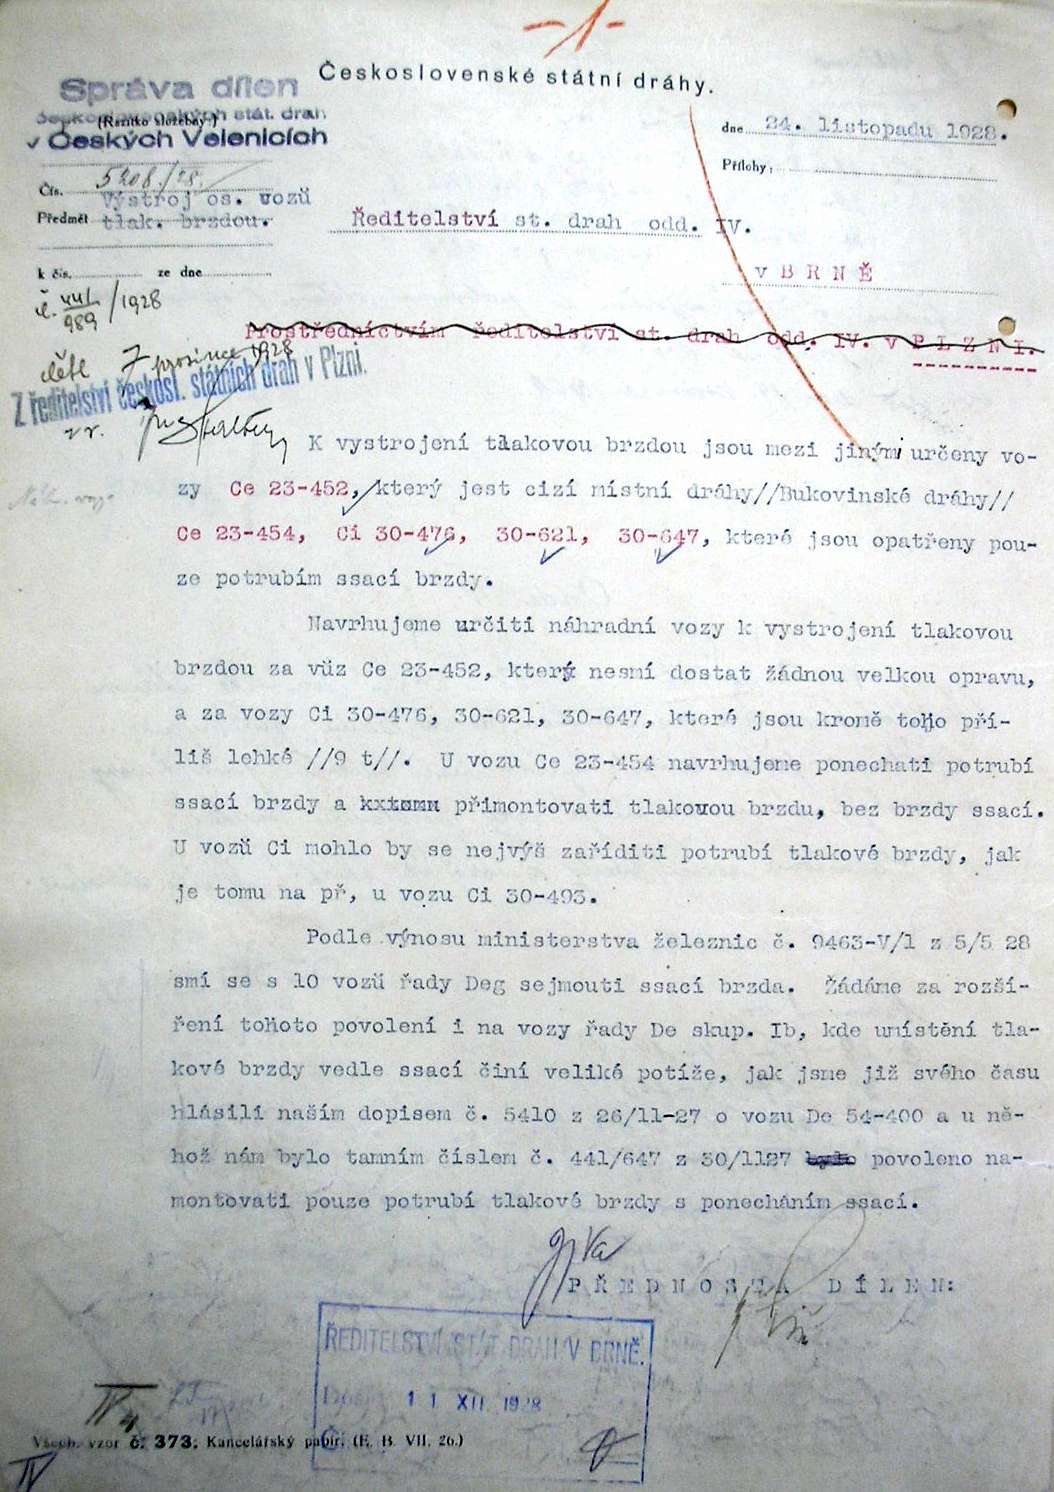 -1-
Československé státní dráhy.
Správa dílen
československých stát. drah
(Razítko služebny)
v Českých Velenicích
dne 24. listopadu 1928.
Přílohy:
Čís. 5208/28.
Předmět Výstroj os. vozů
tlak. brzdou.
Ředitelství st. drah odd. IV.
k čís. ze dne
v BRNĚ
č. 441/989 /1928
Prostřednictvím ředitelství st. drah odd. IV. v PLZNI.
7 prosince 1928
Z ředitelství českosl. státních drah v Plzni.
K vystrojení tlakovou brzdou jsou mezi jinými určeny vo-
zy Ce 23-452, který jest cizí místní dráhy//Bukovinské dráhy//
Ce 23-454, Ci 30-476, 30-621, 30-647, které jsou opatřeny pou-
ze potrubím ssací brzdy.
Navrhujeme určiti náhradní vozy k vystrojení tlakovou
brzdou za vůz Ce 23-452, který nesmí dostat žádnou velkou opravu,
a za vozy Ci 30-476, 30-621, 30-647, které jsou kromě toho pří-
liš lehké //9 t//. U vozu Ce 23-454 navrhujeme ponechati potrubí
ssací brzdy a přimontovati tlakovou brzdu, bez brzdy ssací.
U vozů Ci mohlo by se nejvýš zaříditi potrubí tlakové brzdy, jak
je tomu na př, u vozu Ci 30-493.
Podle výnosu ministerstva železnic č. 9463-V/1 z 5/5 28
smí se s 10 vozů řady Deg sejmouti ssací brzda. Žádáme za rozší-
ření tohoto povolení i na vozy řady De skup. Ib, kde umístění tla-
kové brzdy vedle ssací činí veliké potíže, jak jsme již svého času
hlásili naším dopisem č. 5410 z 26/11-27 o vozu De 54-400 a u ně-
hož nám bylo tamním číslem č. 441/647 z 30/1127 bylo povoleno na-
montovati pouze potrubí tlakové brzdy s ponecháním ssací.
PŘEDNOSTA DÍLEN:
ŘEDITELSTVÍ STÁT. DRAH V BRNĚ.
11 XII 1928
Všeob. vzor č. 373. Kancelářský papír. (E. B. VII. 26.)
IV